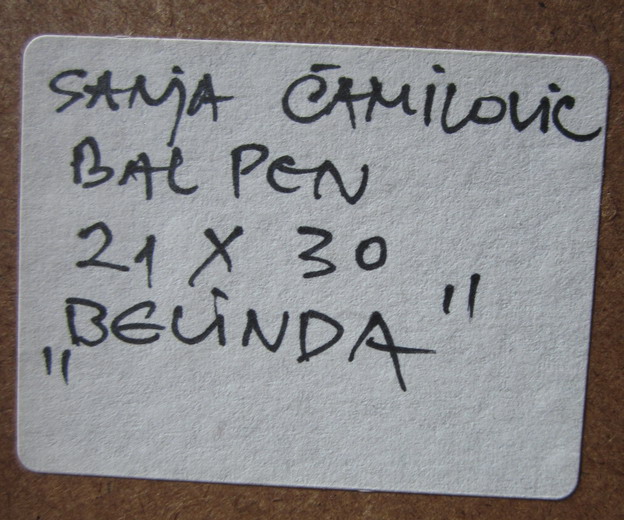 SANjA ČAMiLOViC
BAL PEN
21 X 30
„BELiNDA"